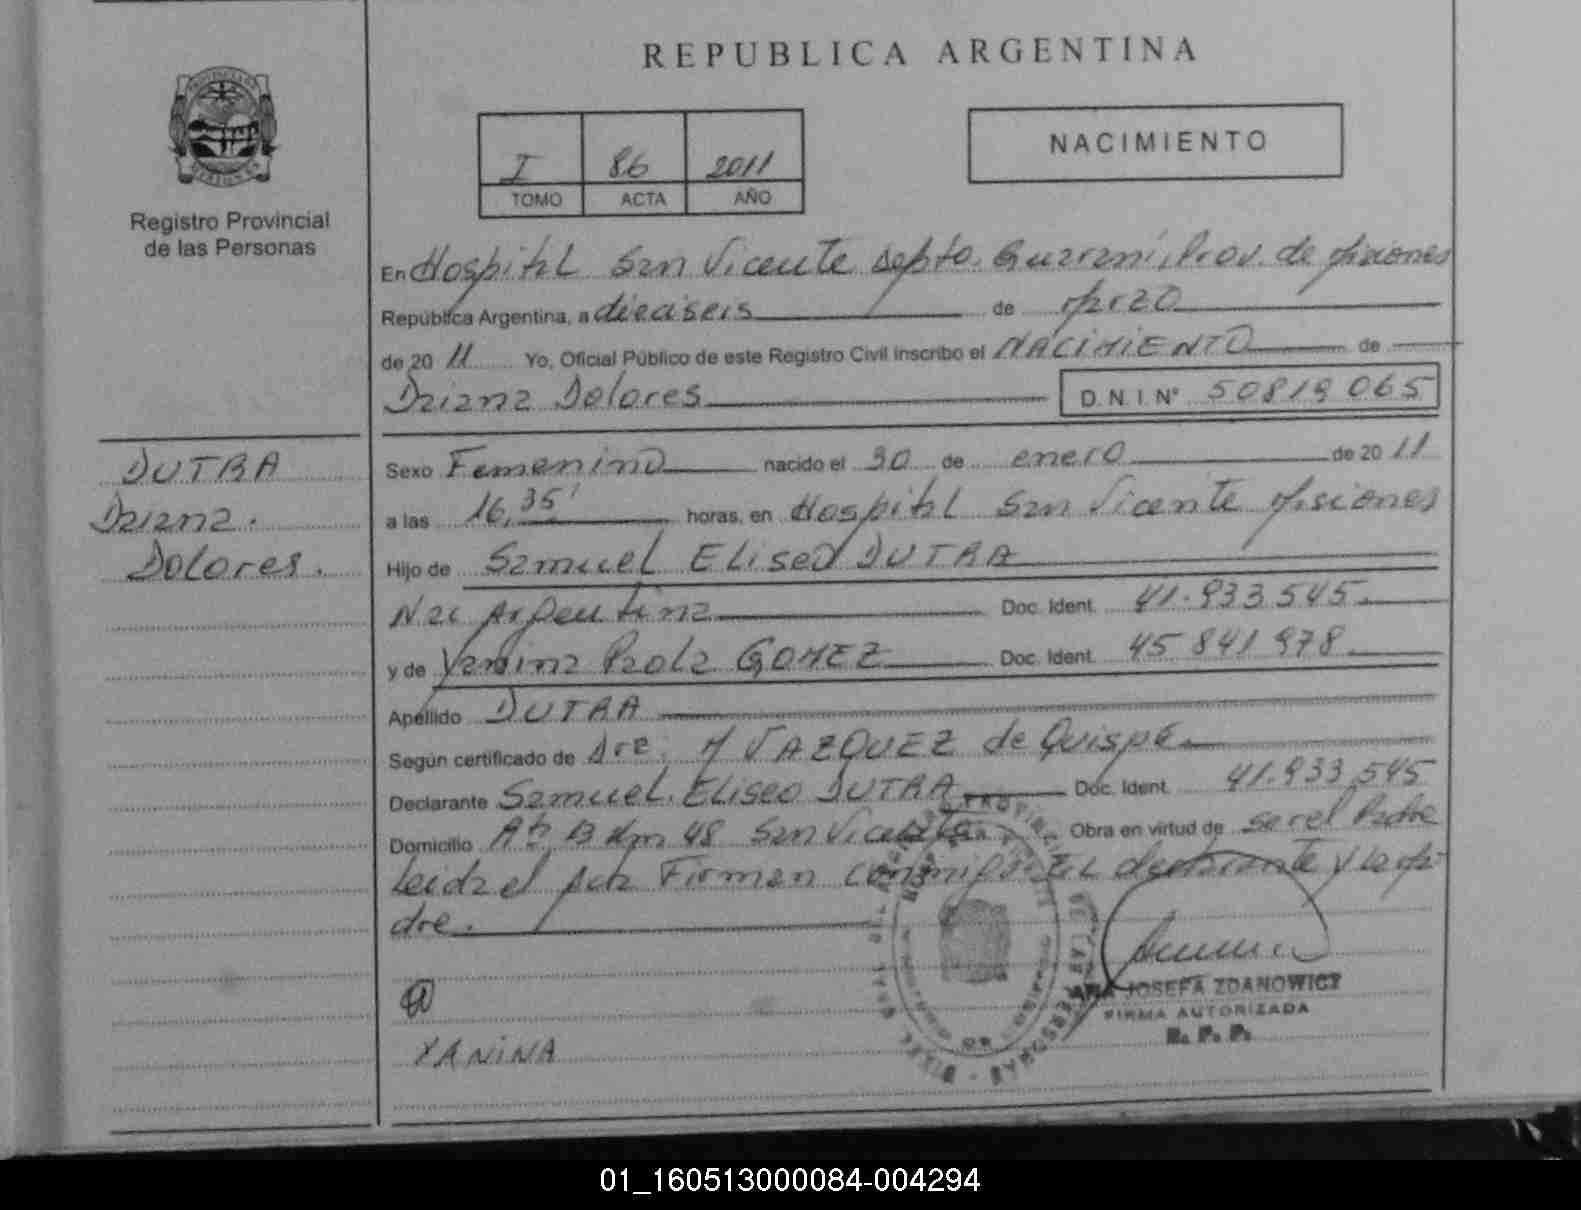 REPUBLICA ARGENTINA
I 86 2011
TOMO ACTA AÑO
NACIMIENTO
Registro Provincial
de las Personas
En Hospital San Vicente Depto. Guaraní, Prov. de Misiones
República Argentina, a dieciseis de Marzo
de 2011 Yo, Oficial Público de este Registro Civil inscribo el NACIMIENTO de
Daiana Dolores D. N. I. Nº 50819065
DUTRA
Daiana.
Dolores.
Sexo Femenino nacido el 30 de enero de 2011
a las 16,35' horas, en Hospital San Vicente Misiones
Hijo de Samuel Eliseo DUTRA
Nac Argentina Doc. Ident. 41.933.545.
y de Yanina Paola GOMEZ Doc. Ident. 45 841 978.
Apellido DUTRA
Según certificado de Dra. M VAZQUEZ de Quispe
Declarante Samuel Eliseo DUTRA Doc. Ident. 41.933.545
Domicilio Km 48 San Vicente Obra en virtud de ser el Padre
Leida el acta Firman conmigo El declarante y la Ma-
dre.
YANINA
ANA JOSEFA ZDANOWICZ
FIRMA AUTORIZADA
R. P. P.
01_160513000084-004294